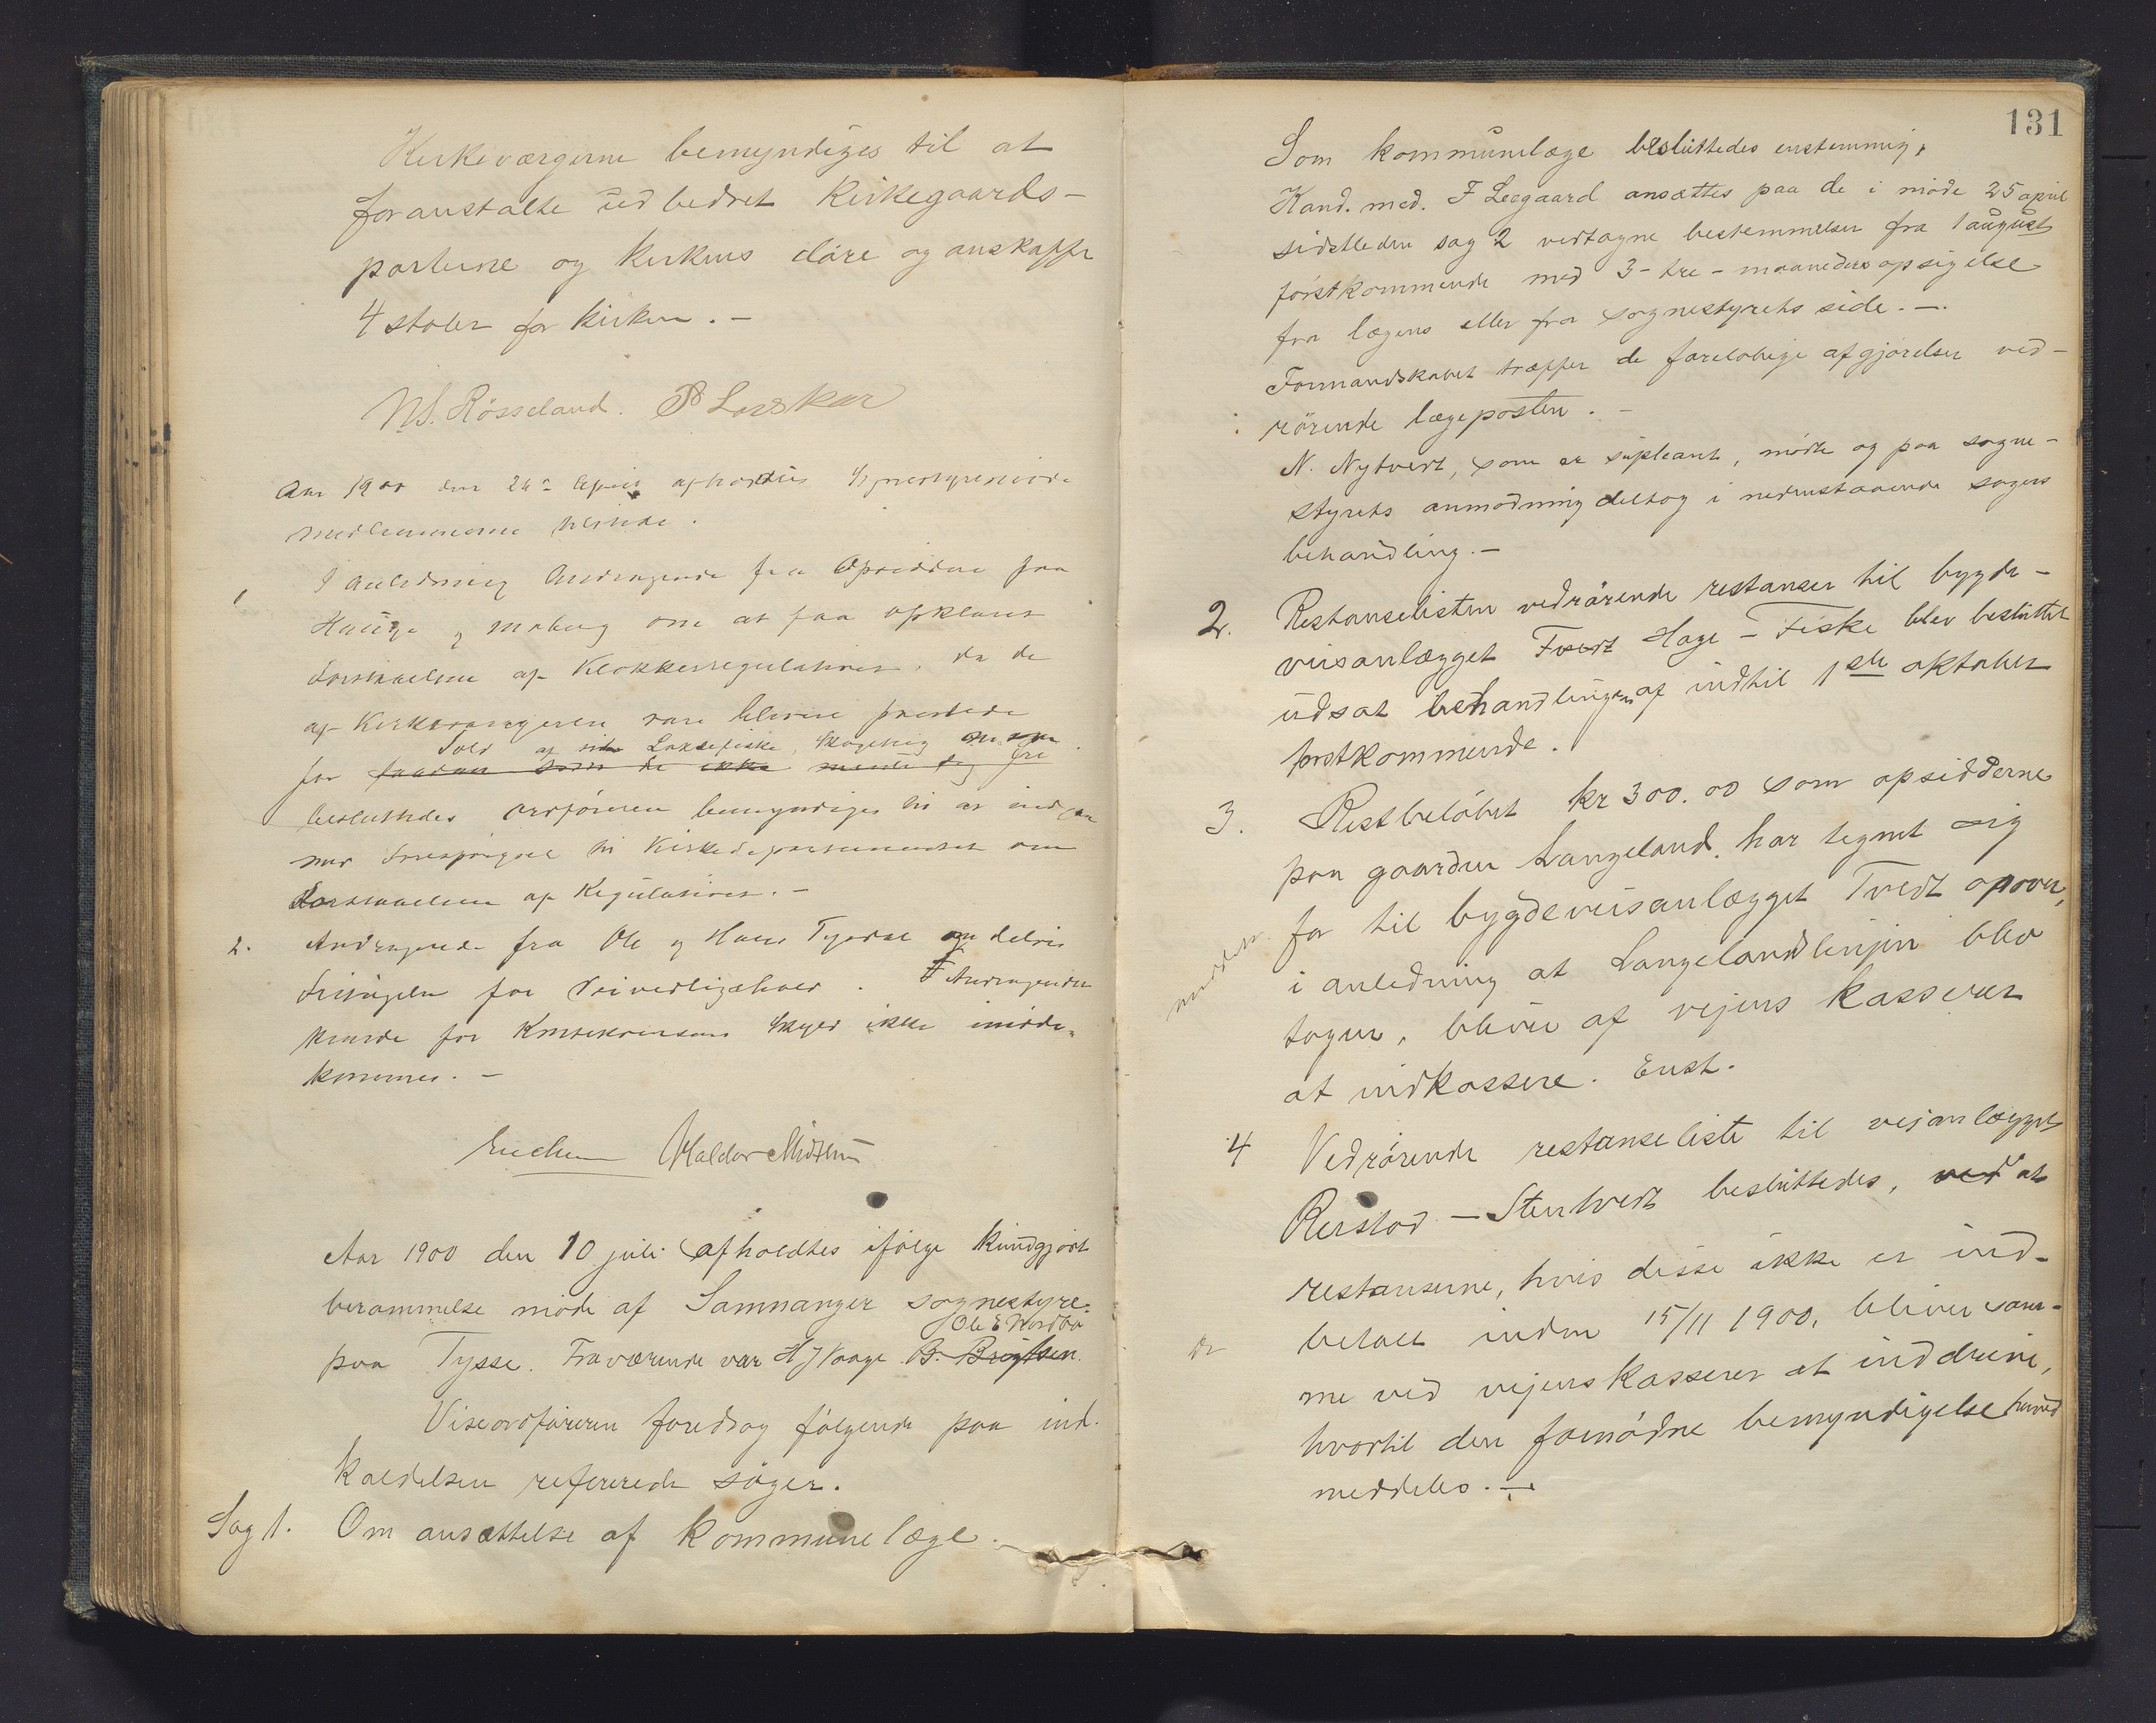 Kirkeværgerne bemyndiges til at
foranstalte udbedret Kirkegaards-
porterne og kirkens döre og anskaffe
4 stoler for kirken. -
NS. Rösseland.
Aar 1900 den April afholdtes Sognestyremöde
Medlemmerne tilstede.
1 I Anledning Andragende fra Opsiddere paa
Hauge og om at faa opklaret
Forstaaelsen af Klokkerregulativet, da de
af Kirkesangeren
Told af Laksefiske, Skogsteig
for saadan som de ikke mente sig fri
besluttedes ordföreren bemyndiges til at indgaa
med Forespörgsel til Kirkedepartementet om
Forstaaelsen af Regulativet. -
2. Andragende fra Ole og Hans Tysdal om delvis
Fritagelse for Veivedligehold. Andragendet
kunde for Konsekvensens Skyld ikke imöde-
kommes. -
Halldor Midttun
Aar 1900 den 10 juli afholdtes ifölge kundgjort
berammelse möde af Samnanger sognestyre
Ole E Nordbö
paa Tysse. Fraværende var H J Vaage B. Brigtsen.
Viseordföreren foredrog fölgende paa ind-
kaldelsen refererede sager.
Sag 1. Om ansættelse af kommunelæge.
131
Som kommunelæge besluttedes enstemmig,
Kand. med. F Leegaard ansættes paa de i möde 25 april
sidstleden sag 2 vedtagne bestemmelser fra 1 august
förstkommende med 3 - tre - maaneders opsigelse
fra lægens eller fra sognestyrets side. -.
Formandskabet træffer de foreløbige afgjörelser ved-
rörende lægeposten. -
N. Nytvedt, som er supleant, mödte og paa sogne-
styrets anmodning deltog i nedenstaaende sagers
behandling. -
2. Restanselisten vedrörende restanser til bygde-
veisanlægget Tvedt Hage - Fiske blev besluttet
udsat behandlingen af indtil 1ste oktober
förstkommende.
3. Restbelöbet kr 300.00 som opsidderne
paa gaarden Langeland har tegnet sig
for til bygdeveisanlægget Tvedt opover,
i anledning at Langelandlinjen blev
tagen, bliver af vejens kasserer
at indkassere. Enst.
4 Vedrörende restanseliste til vejanlægget
Reistad - Stentvedt besluttedes, ved at
restanserne, hvis disse ikke er ind-
betalt inden 15/11 1900, bliver sam-
me ved vejens kasserer at inddrive,
hvortil den fornödne bemyndigelse herved
meddeles. -